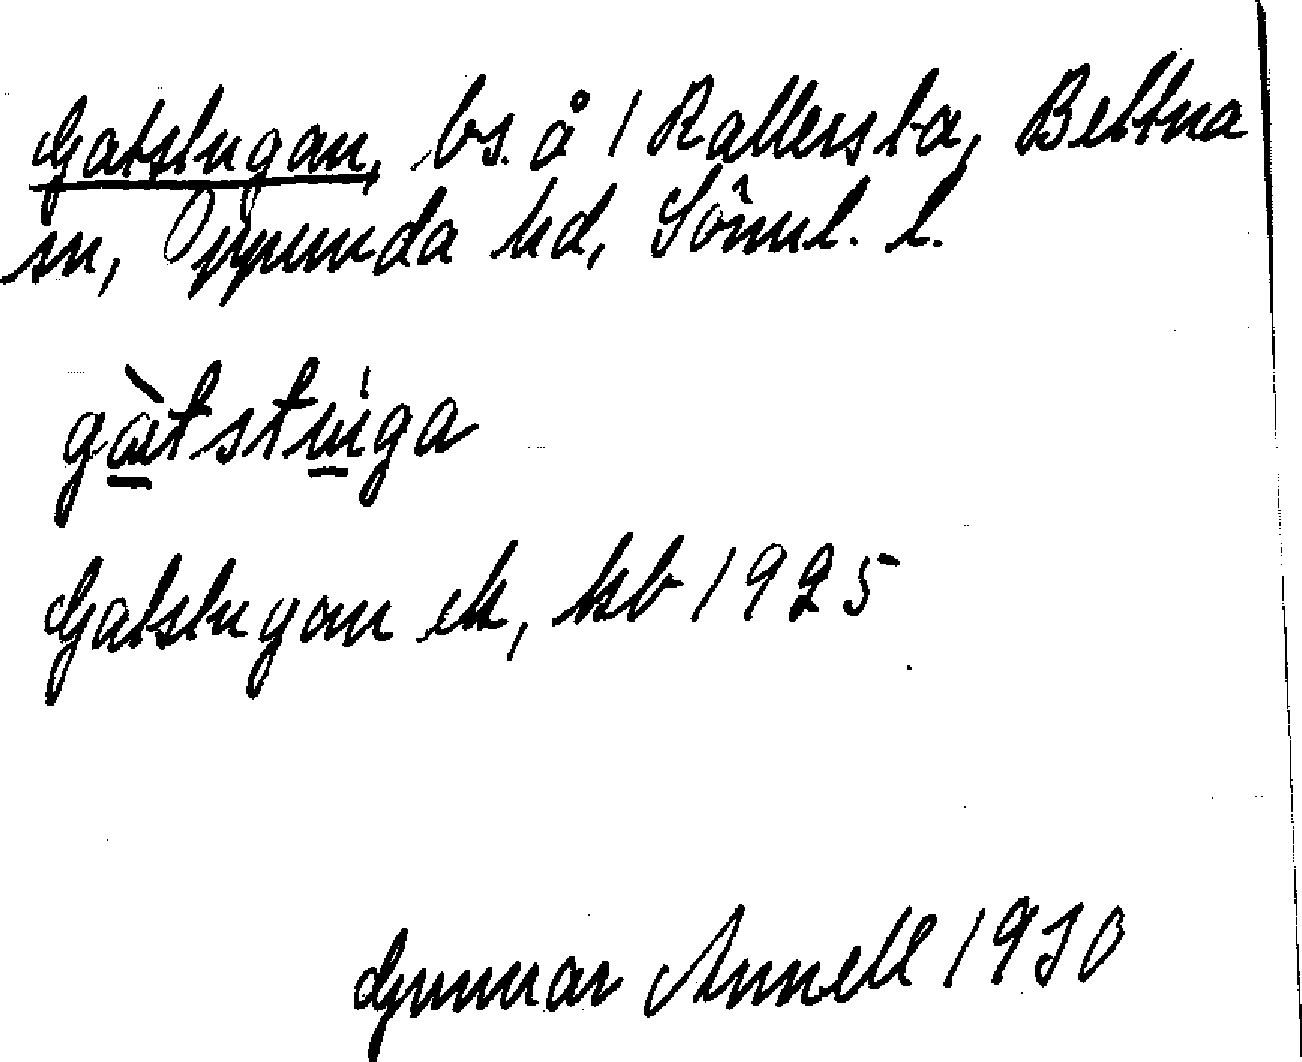 Gatstugan, bs. å 1 Rallersta, Bettna
sn, Oppunda hd, Söml. l.
gàtstúga
Gatstugan ek, kb 1925
Gunnar Annell 1930